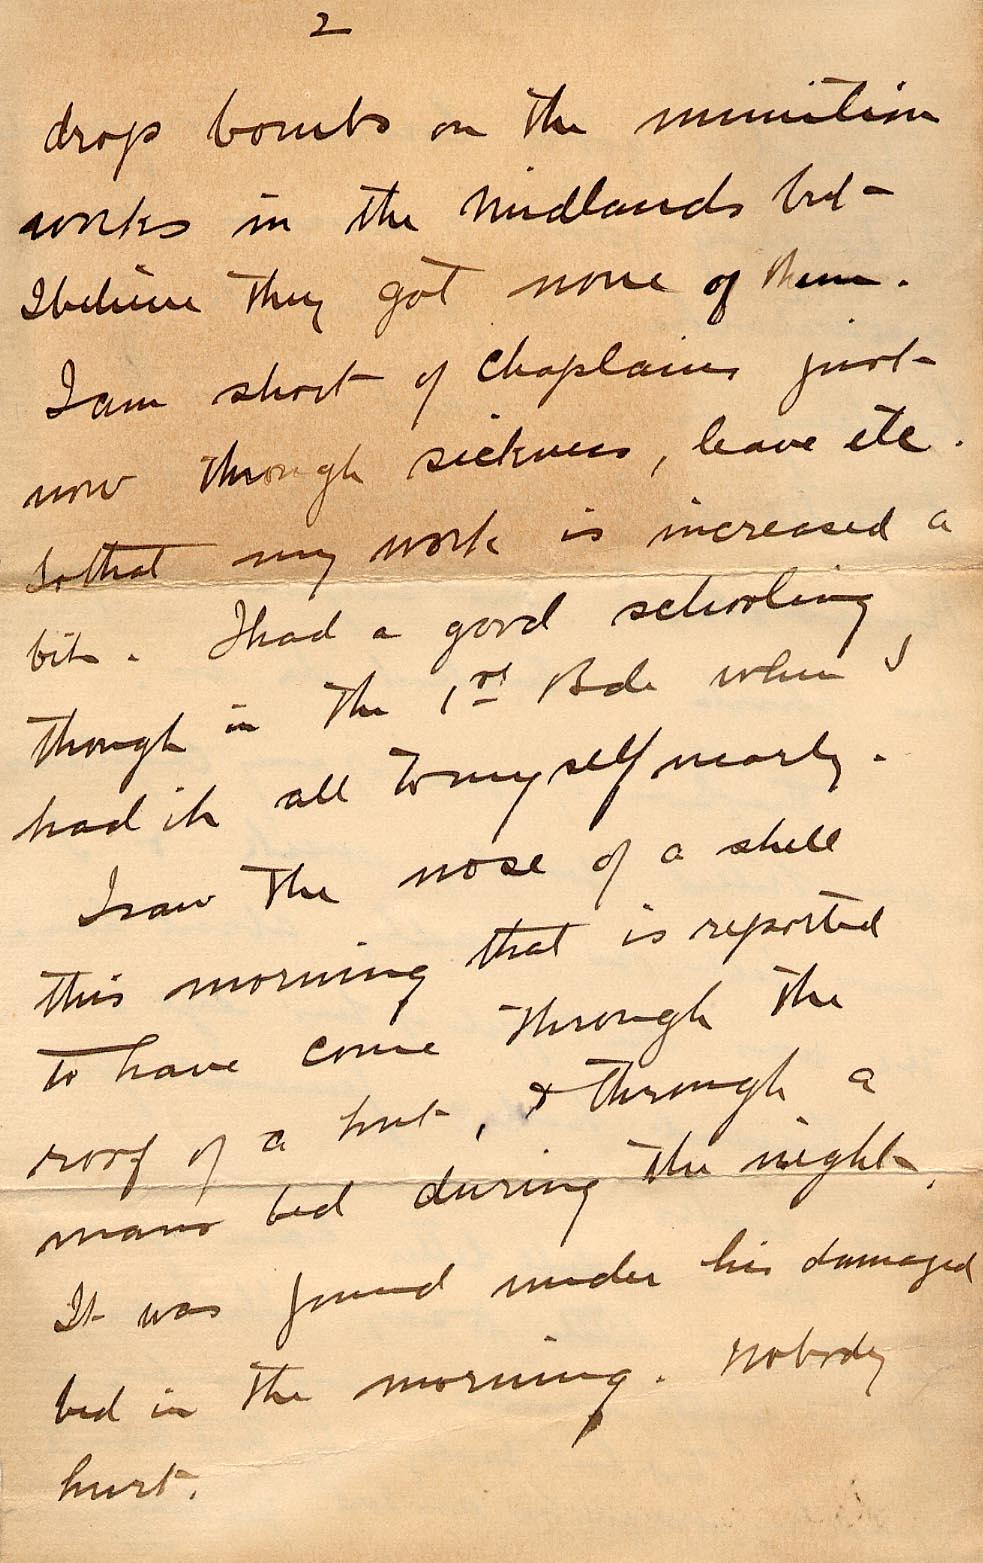 2
drop bombs on the munition
works in the Midlands but
I believe they got none of them.
I am short of Chaplains just
now through sickness, leave etc.
So that my work is increased a
bit. I had a good schooling
though in the 1st Bde when I
had it all to myself nearly.
I saw the nose of a shell
this morning that is reported
to have come through the
roof of a hut, & through a
mans bed during the night.
It was found under his damaged
bed in the morning. Nobody
hurt.